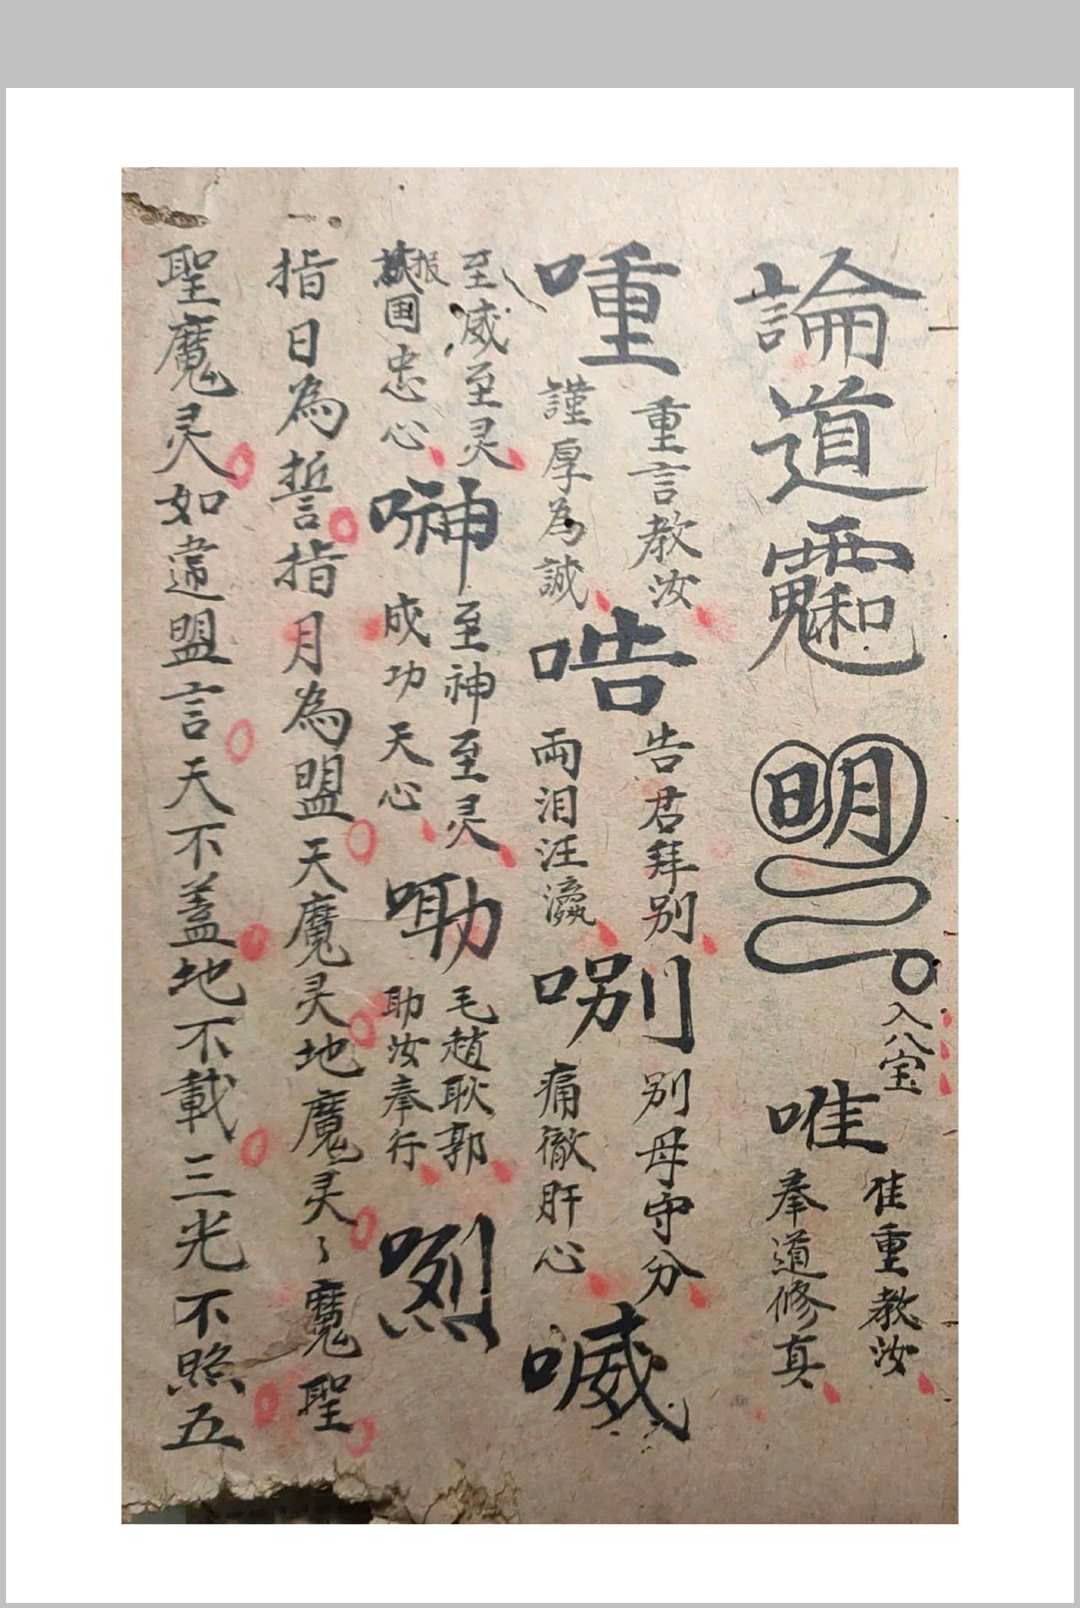 論道
明
入八宝
唯
隹重教汝
奉道修真
喠
重言教汝
謹厚為誠
哠
告君拜别
兩泪汪瀛
别母守分
痛徹肝心
喴
至威至灵
报国忠心
至神至灵
成功天心
毛趙耿郭
助汝奉行
指日為誓指月為盟天魔灵地魔灵〻魔聖
聖魔灵如違盟言天不蓋地不載三光不照五